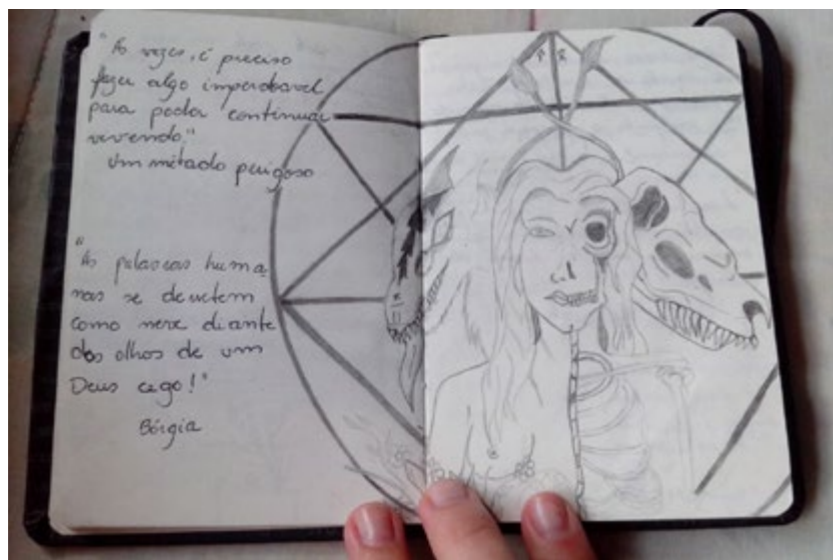 "Às vezes, é preciso
fazer algo improbavel
para poder continuar
vivendo,"
Um método perigoso
"As palavras huma
nas se derretem
como neve diante
dos olhos de um
Deus cego!"
Bórgia